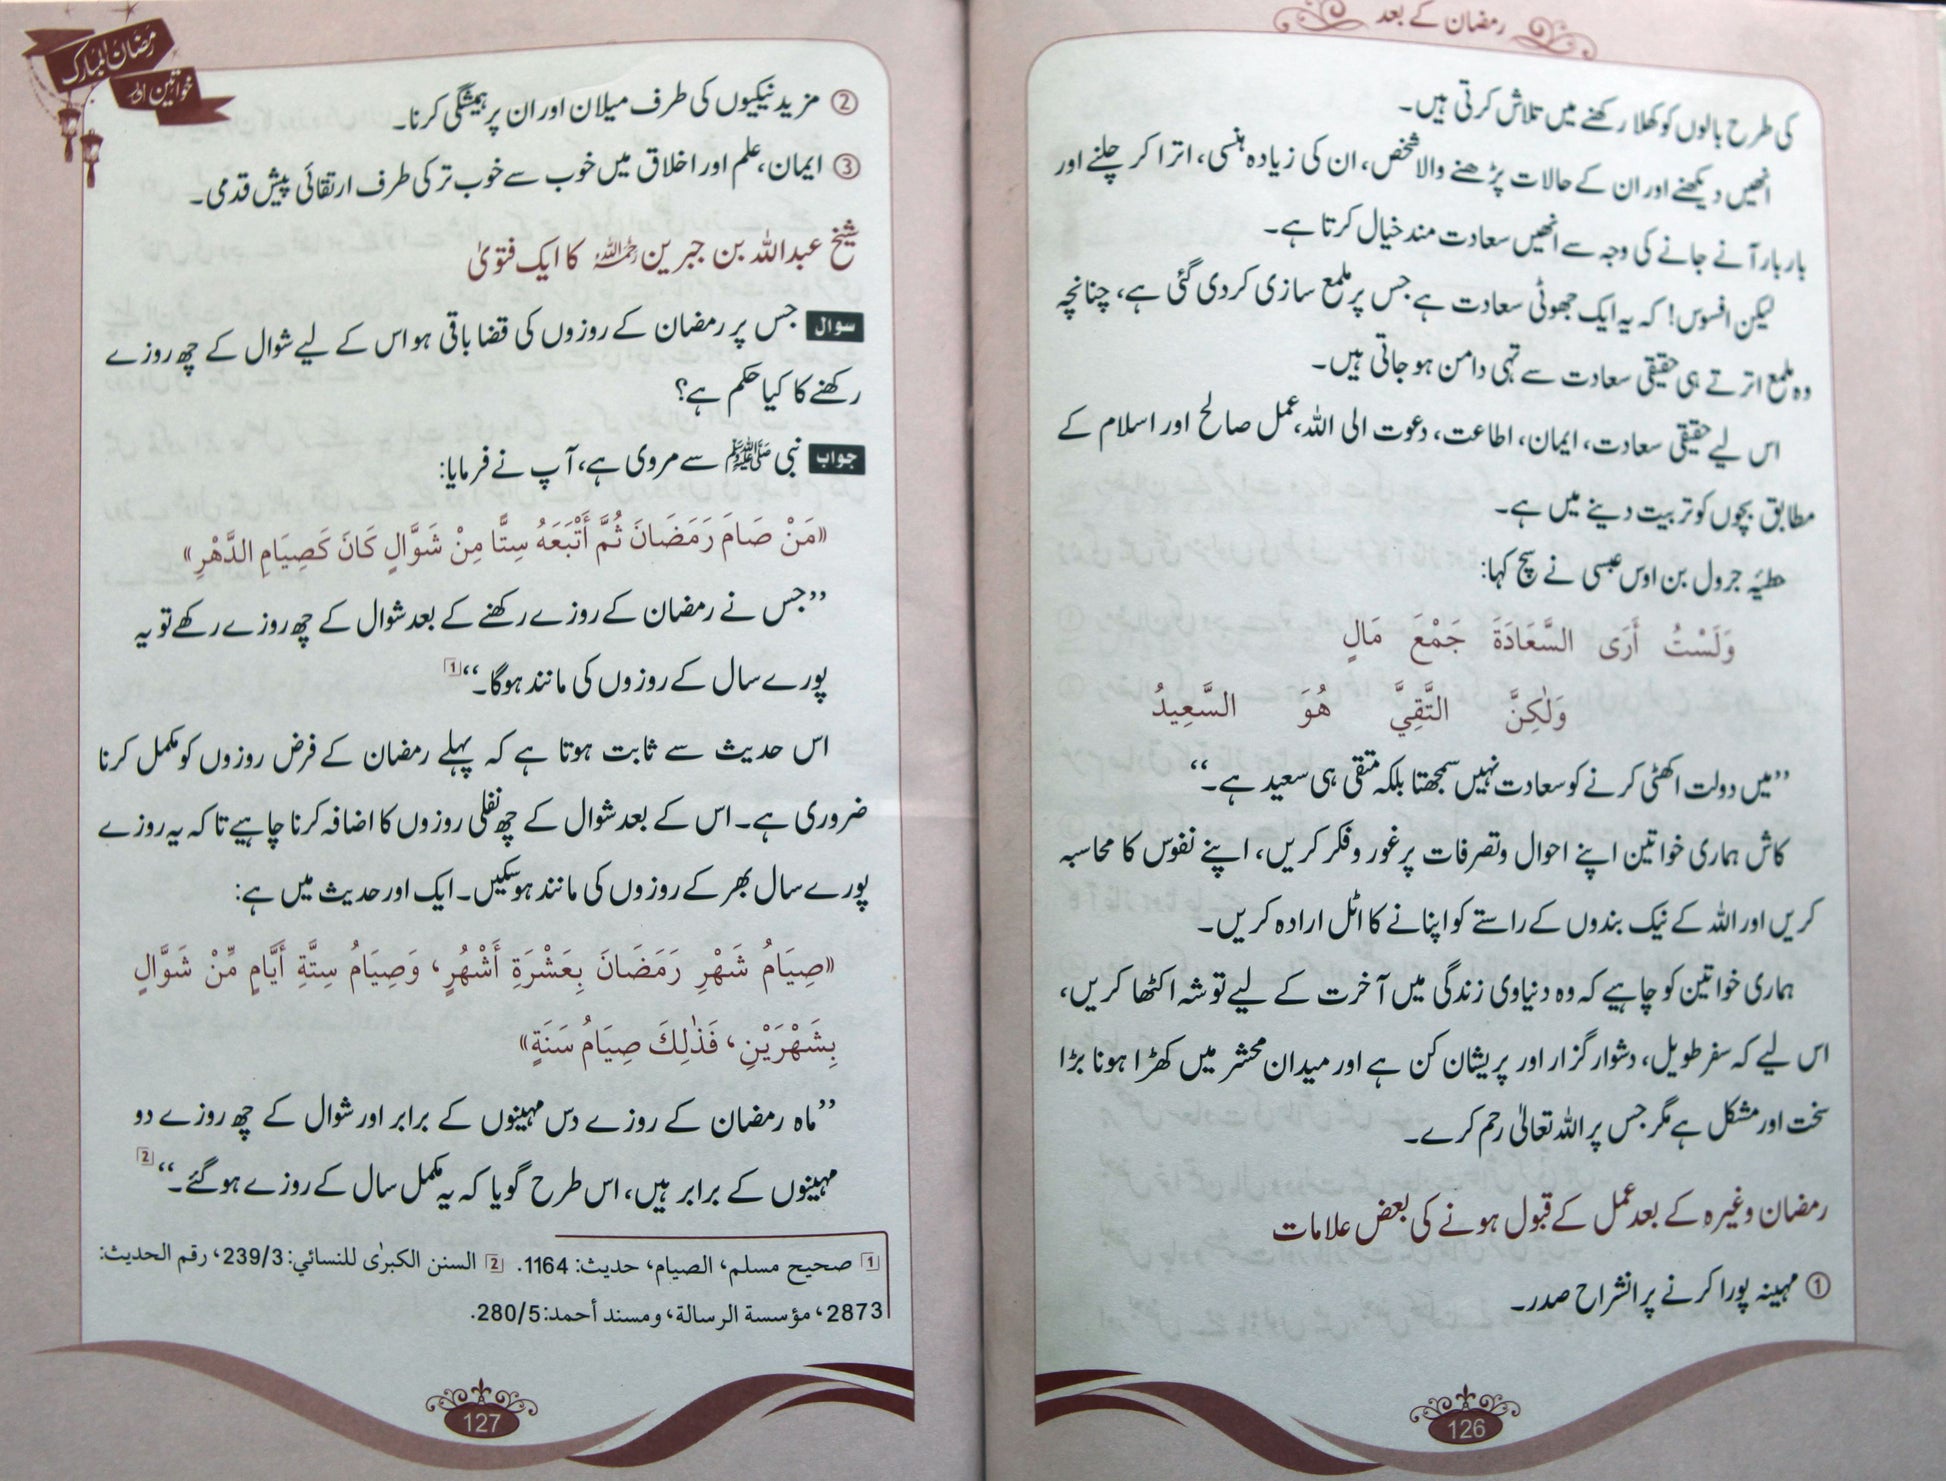 رمضان کے بعد
کی طرح بالوں کو کھلا رکھنے میں تلاش کرتی ہیں۔
انھیں دیکھنے اور ان کے حالات پڑھنے والا شخص، ان کی زیادہ ہنسی، اترا کر چلنے اور
بار بار آنے جانے کی وجہ سے انھیں سعادت مند خیال کرتا ہے۔
لیکن افسوس! کہ یہ ایک جھوٹی سعادت ہے جس پر ملمع سازی کر دی گئی ہے، چنانچہ
وہ ملمع اترتے ہی حقیقی سعادت سے تہی دامن ہو جاتی ہیں۔
اس لیے حقیقی سعادت، ایمان، اطاعت، دعوت الی اللہ، عمل صالح اور اسلام کے
مطابق بچوں کو تربیت دینے میں ہے۔
حطیۂ جرول بن اوس عبسی نے سچ کہا:
وَلَسْتُ أَرَى السَّعَادَةَ جَمْعَ مَالٍ
وَلٰكِنَّ التَّقِيَّ هُوَ السَّعِيدُ
”میں دولت اکٹھی کرنے کو سعادت نہیں سمجھتا بلکہ متقی ہی سعید ہے۔“
کاش ہماری خواتین اپنے احوال وتصرفات پر غور وفکر کریں، اپنے نفوس کا محاسبہ
کریں اور اللہ کے نیک بندوں کے راستے کو اپنانے کا اٹل ارادہ کریں۔
ہماری خواتین کو چاہیے کہ وہ دنیاوی زندگی میں آخرت کے لیے توشہ اکٹھا کریں،
اس لیے کہ سفر طویل، دشوار گزار اور پریشان کن ہے اور میدان محشر میں کھڑا ہونا بڑا
سخت اور مشکل ہے مگر جس پر اللہ تعالٰی رحم کرے۔
رمضان وغیرہ کے بعد عمل کے قبول ہونے کی بعض علامات
① مہینہ پورا کرنے پر انشراح صدر۔
126
رمضان المبارک
خواتین اور
② مزید نیکیوں کی طرف میلان اور ان پر ہمیشگی کرنا۔
③ ایمان، علم اور اخلاق میں خوب سے خوب تر کی طرف ارتقائی پیش قدمی۔
شیخ عبداللہ بن جبرین رحمہ اللہ کا ایک فتویٰ
سوال جس پر رمضان کے روزوں کی قضا باقی ہو اس کے لیے شوال کے چھ روزے
رکھنے کا کیا حکم ہے؟
جواب نبی ﷺ سے مروی ہے، آپ نے فرمایا:
«مَنْ صَامَ رَمَضَانَ ثُمَّ أَتْبَعَهُ سِتًّا مِنْ شَوَّالٍ كَانَ كَصِيَامِ الدَّهْرِ»
”جس نے رمضان کے روزے رکھنے کے بعد شوال کے چھ روزے رکھے تو یہ
پورے سال کے روزوں کی مانند ہوگا۔“ 1
اس حدیث سے ثابت ہوتا ہے کہ پہلے رمضان کے فرض روزوں کو مکمل کرنا
ضروری ہے۔ اس کے بعد شوال کے چھ نفلی روزوں کا اضافہ کرنا چاہیے تاکہ یہ روزے
پورے سال بھر کے روزوں کی مانند ہو سکیں۔ ایک اور حدیث میں ہے:
«صِيَامُ شَهْرِ رَمَضَانَ بِعَشْرَةِ أَشْهُرٍ، وَصِيَامُ سِتَّةِ أَيَّامٍ مِّنْ شَوَّالٍ
بِشَهْرَيْنِ، فَذٰلِكَ صِيَامُ سَنَةٍ»
”ماہ رمضان کے روزے دس مہینوں کے برابر اور شوال کے چھ روزے دو
مہینوں کے برابر ہیں، اس طرح گویا کہ یہ مکمل سال کے روزے ہو گئے۔“ 2
1 صحيح مسلم، الصيام، حديث: 1164. 2 السنن الكبرٰى للنسائي: 239/3، رقم الحديث:
2873، مؤسسة الرسالة، ومسند أحمد: 280/5.
127